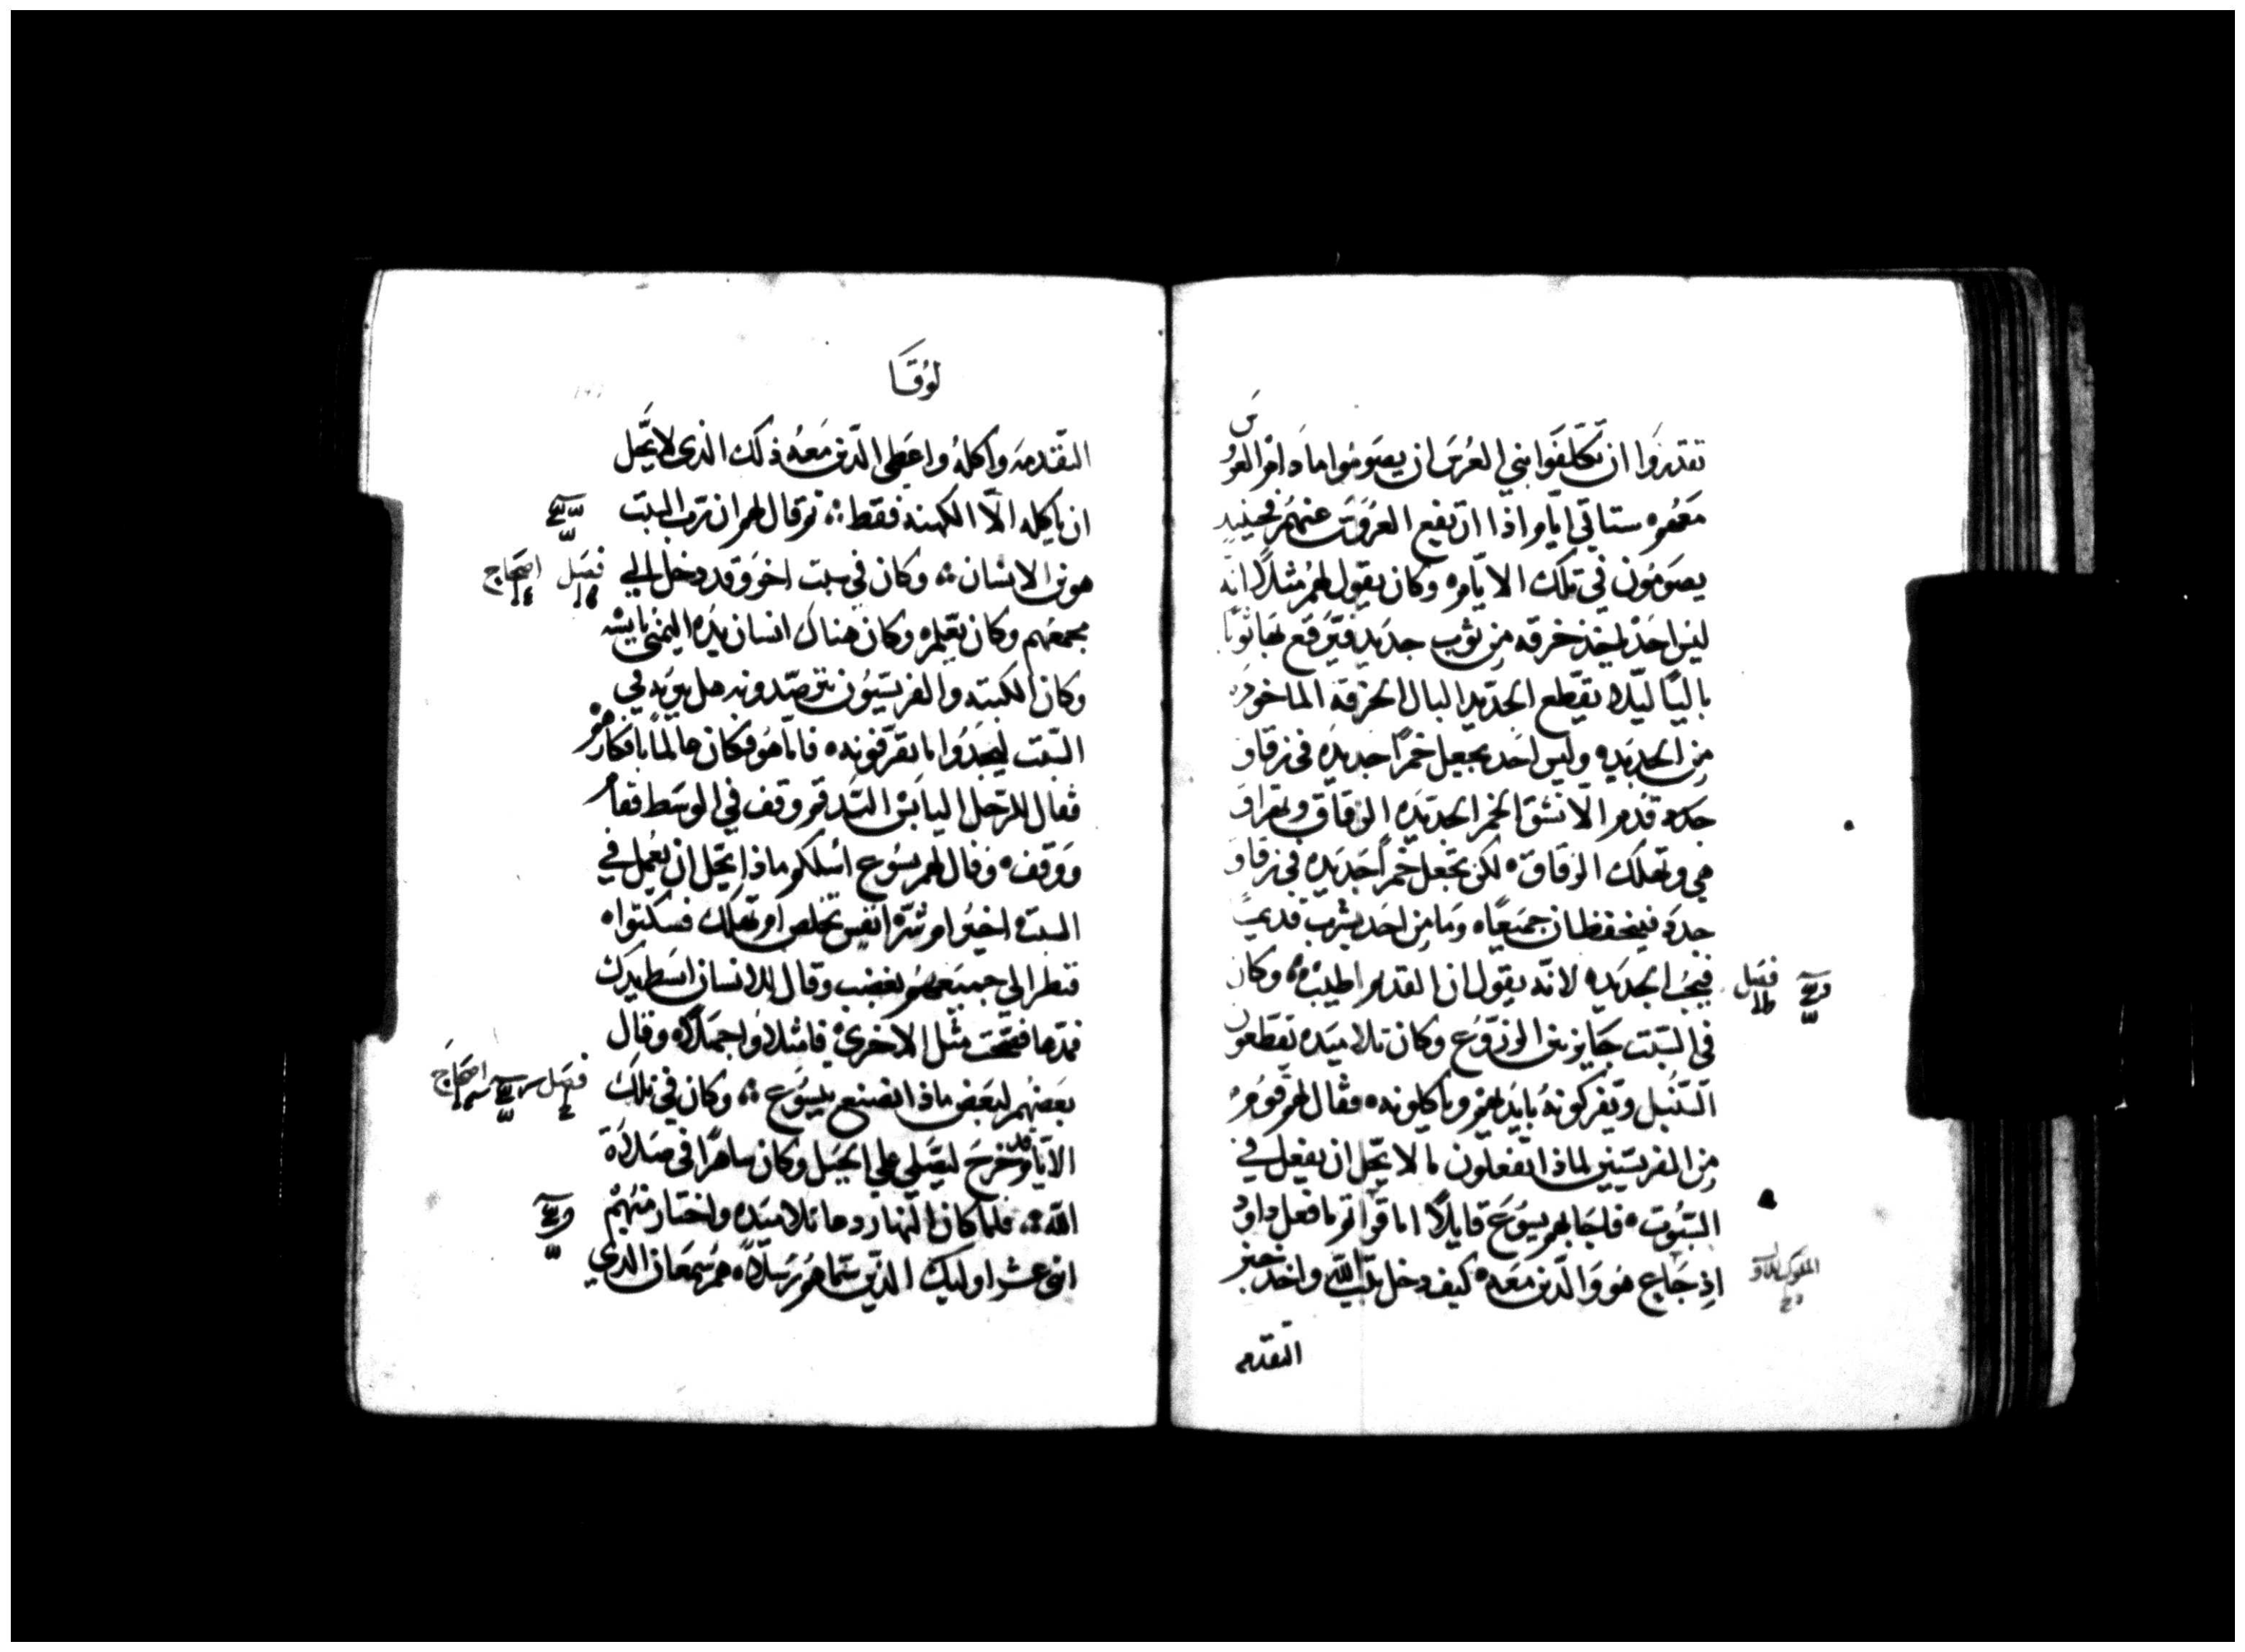 تقدروا ان تكلفوا بني العرس ان يصوموا ما دام العروس
معهم ستاتي ايام اذا ارتفع العروس عنهم فحينيد
يصومون في تلك الايام وكان يقول لهم مثلاً انه
ليس احد ياخذ خرقه من ثوب جديد فيرقع بها ثوباً
بالياً ليلا يقطع الجديد البال الخرقه الماخوده
من الجديد وليس احد يجعل خمراً جديده في زقاق
قدم الا تنشق الخمر الجديده الزقاق وتهراق
هي وتهلك الزقاق لكن تجعل خمراً جديده في زقاق
جدد فينحفظان جميعاً وما من احد يشرب قديمً
فيحب الجديد لانه يقول ان القديم اطيب وكان
فصل
في السبت جايز بين الزروع وكان تلاميده يقطعون
السنبل ويفركونه بايديهم وياكلونه فقال لهم قوم
من الفريسيين لماذا تفعلون ما لا يحل ان يفعل في
السبوت فاجابهم يسوع قايلاً اما قراتم ما فعل داود
اذ جاع هو والذين معه كيف دخل بيت الله واخذ خبز
التقدمه
لوقا
التقدمه واكله واعطى الذين معه ذلك الذي لا يحل
ان ياكله الا الكهنه فقط ثم قال لهم ان رب السبت
هو ابن الانسان وكان في سبت اخر وقد دخل الي
فصل اصحاح
مجمعهم وكان يعلم وكان هناك انسان يده اليمنى يابسه
وكان الكتبه والفريسيون يترصدونه هل يبريه في
السبت ليجدوا ما يقرفونه فاما هو فكان عالماً بافكارهم
فقال للرجل اليابس اليد قم وقف في الوسط فقام
ووقف وقال لهم يسوع اسلكم ماذا يحل ان يعمل في
السبت اخير ام شر انفس تخلص ام تهلك فسكتوا
فنظر الي جميعهم بغضب وقال للانسان ابسط يدك
فمدها فصحت مثل الاخرى فامتلاوا جهلاً وقال
بعضهم لبعض ماذا نصنع بيسوع وكان في تلك
فصل اصحاح
الايام قد خرج ليصلي على الجبل وكان ساهراً في صلاة
الله فلما كان النهار دعا تلاميده واختار منهم
اثني عشر اوليك الذين سماهم رسلاً هم سمعان الذي